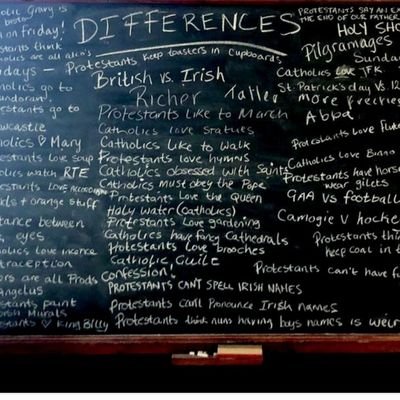 DIFFERENCES
PROTESTANTS SAY AN EX
THE END OF OUR FATHER
HOLY SH
Pilgramages
Sunday
Catholics Love JFK
St. Patrick's day Vs. 12
more freckles
Abba
Protestants Love Flute
Catholics Love Bingo
Protestants have horse
wear gilets
GAA Vs football
Camogie V hocke
Protestants thi
keep coal in t
Protestants can't have f
olic Gravy is
best
on friday!
stants think
holics are all alco's
days — Protestants keep toasters in cupboards
British vs. Irish
Richer
Taller
holics go to
Bundoran!
estants go to
ewcastle
Protestants Like to March
Catholics love Statues
olics ♡ Mary
Catholics Like to walk
estants love soup
Protestants love hymns
olics watch RTE
Catholics obsessed with Saints
estants Love Accordion
Catholics must obey the Pope
+ orange stuff
Protestants Love the Queen
Holy water (Catholics)
tance between
Protestants Love gardening
eyes
Catholics have fancy Cathedrals
olics love incence
Protestants love brooches
traception
Catholic Guilt
ors are all Prods
Confession!
angelus
PROTESTANTS CAN'T SPELL IRISH NAMES
stants paint
Murals
Protestants can't Pronounce Irish names
stants ♡ King Billy
Protestants think nuns having boys names is weir